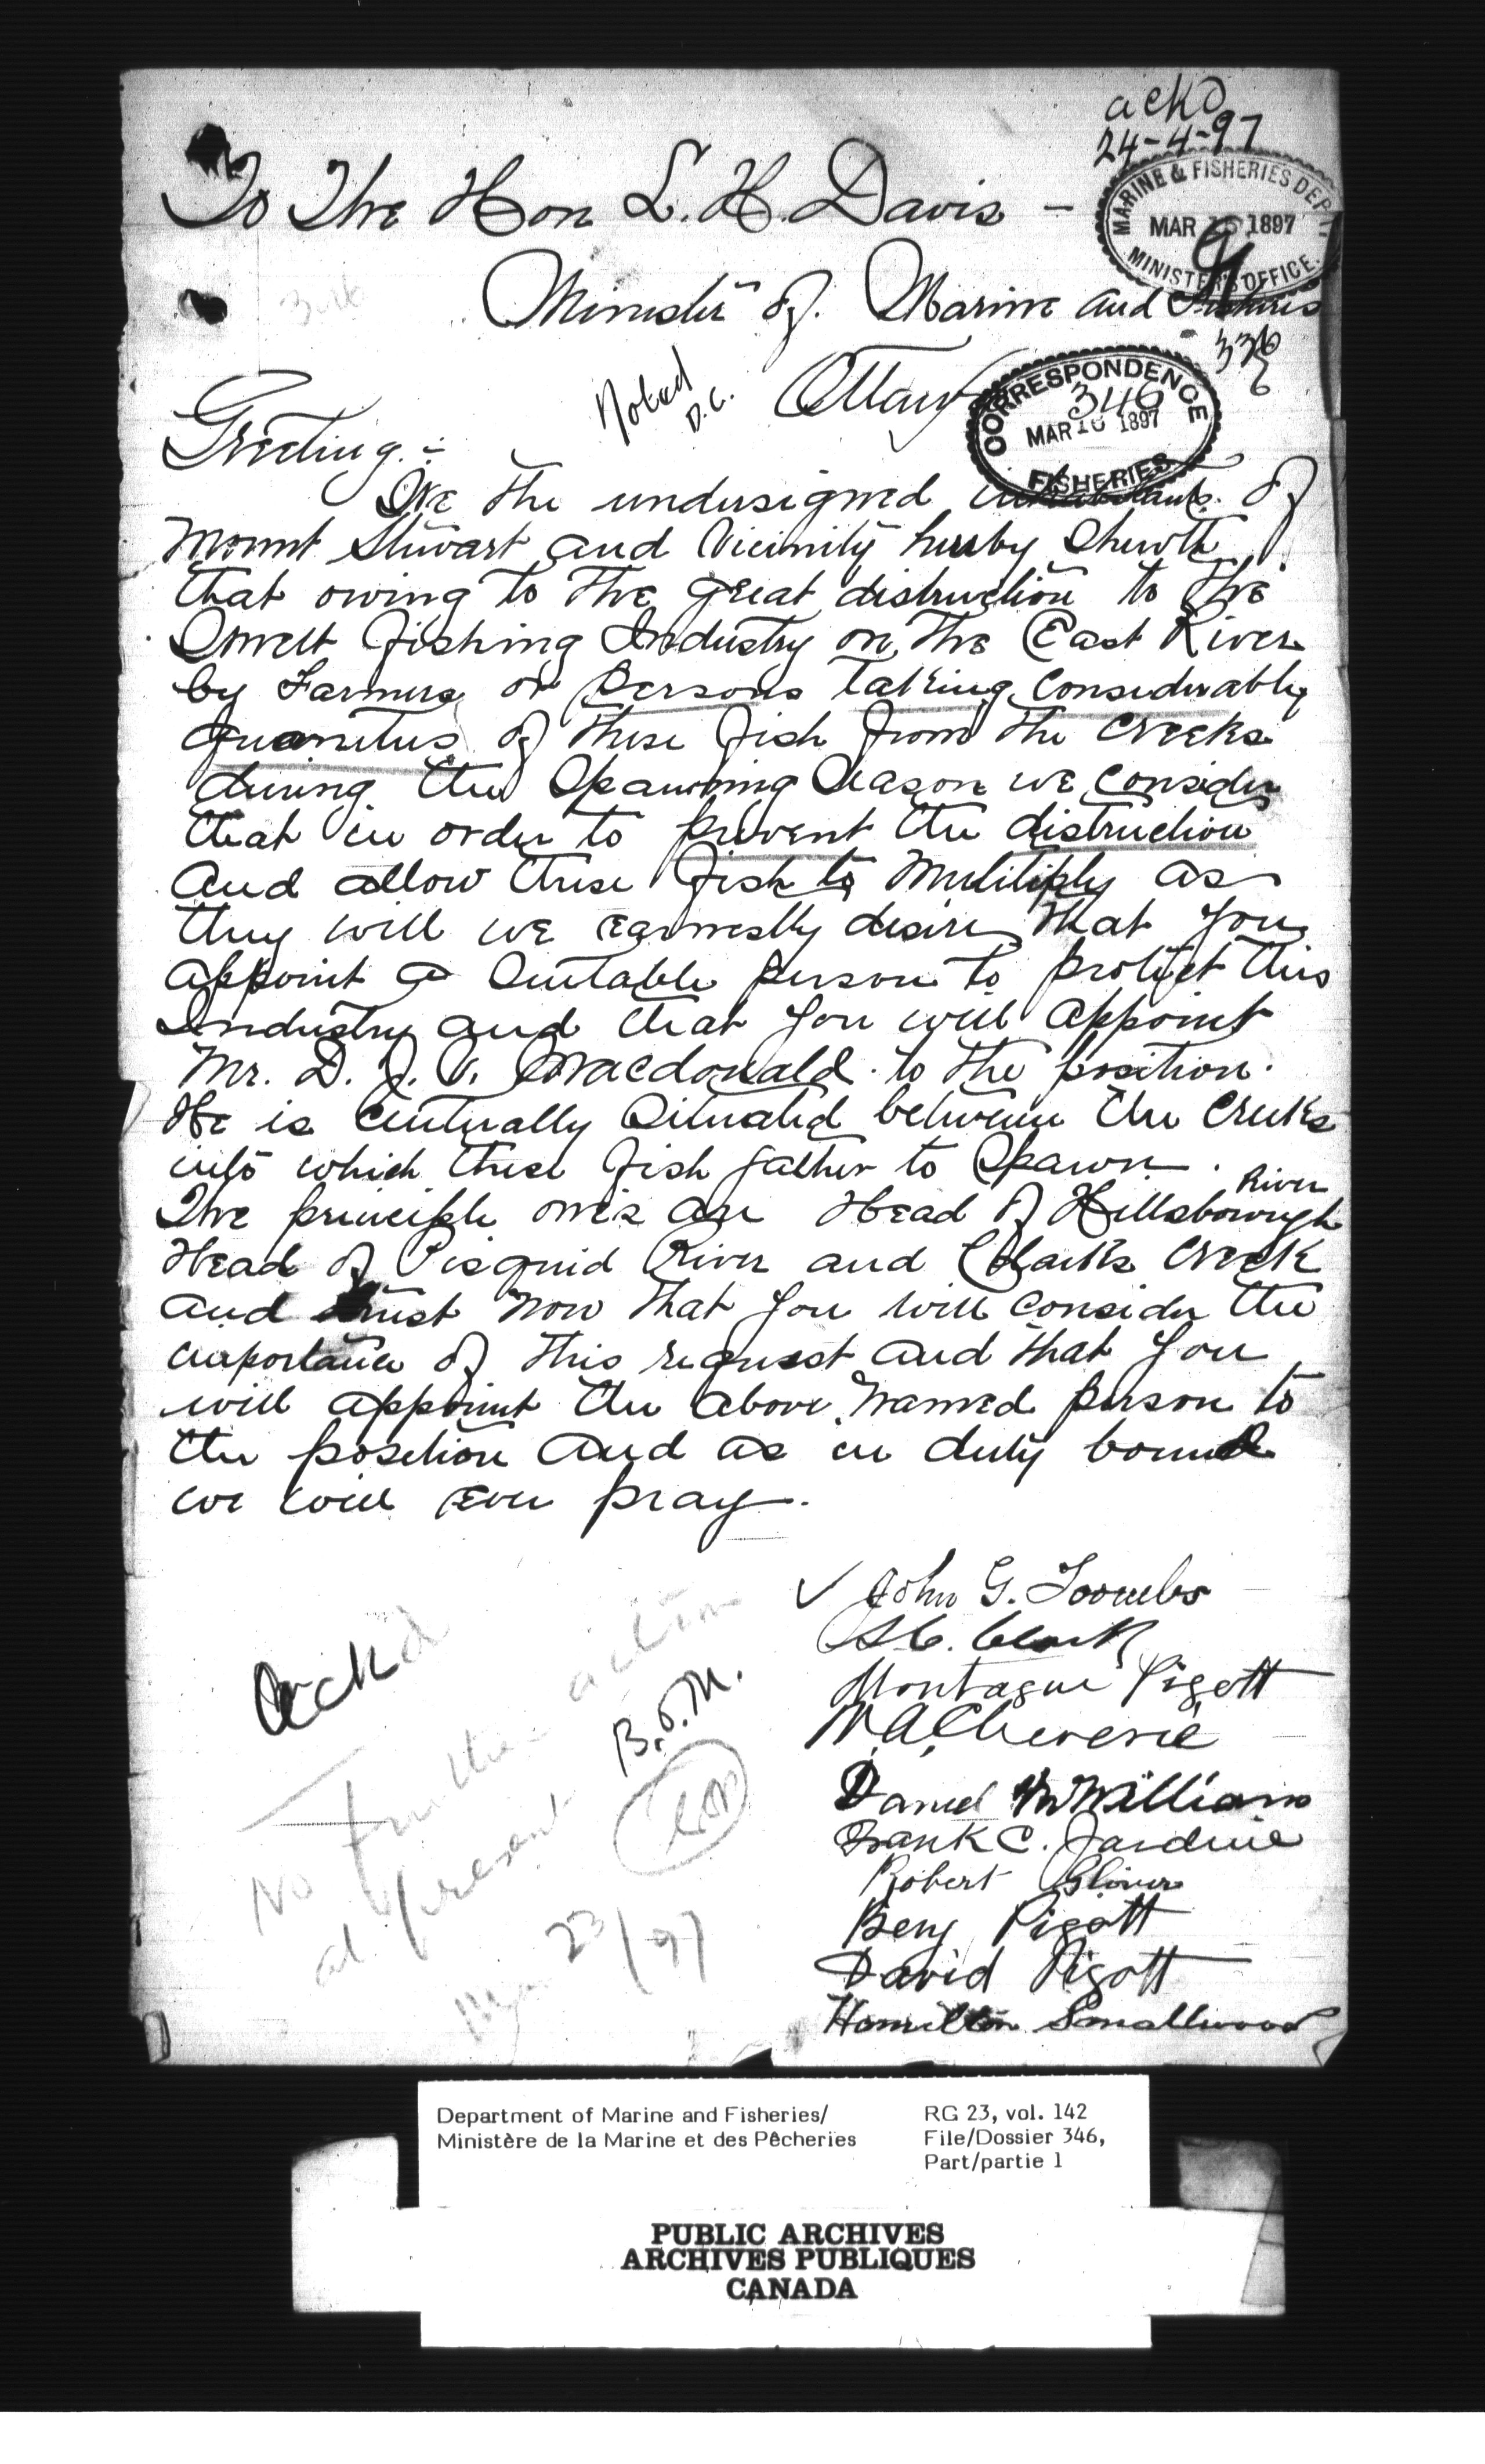 ackd
24-4-97
To The Hon L. H. Davis -
MARINE & FISHERIES DEPT.
MAR 1897
MINISTER'S OFFICE.
346
Minister of. Marine and Fisheries
336
Noted
D.C.
Ottawa
CORRESPONDENCE
346
MAR 16 1897
FISHERIES
Greeting. :-
We the undersigned inhabitants. of
Mount Stewart and Vicinity hereby Sheweth
that owing to the great distruction to the
Smelt Fishing Industry on the East River
by Farmers or Persons taking Considerably
quanitus of these fish from the Creeks
during the Spawning Season we consider
that in order to prevent the distruction
and allow these fish to Multitiply as
they will we earnestly desire that you
appoint a Suitable person to protect this
Industry and that you will appoint
Mr. D. J. Macdonald. to the position.
He is Centrally Situated between the Creeks
into which these fish gather to Spawn.
The principle ones are Head of Hillsborough River
Head of Pisquid River and Clarks Creek
and trust now that you will consider the
importance of this request and that you
will appoint the above named person to
the position and as in duty bound
we will ever pray.
✓ John G. Toombs
Clark
Montague Pigott
W. A. Cheverie
Daniel McWilliams
Frank C. Jardine
Robert Glover
Benj Pigott
David Pigott
Hamilton Smallwood
Ackd
No further action
at present
B.F.M.
Mar 23/97
Department of Marine and Fisheries/
Ministère de la Marine et des Pêcheries
RG 23, vol. 142
File/Dossier 346,
Part/partie 1
PUBLIC ARCHIVES
ARCHIVES PUBLIQUES
CANADA